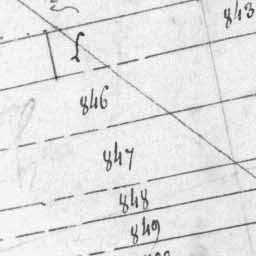 843
846
847
848
849